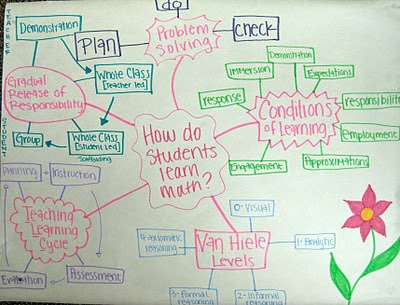 do
Plan
Problem
Solving
check
TEACHER
Demonstration
Whole Class
[Teacher led]
Gradual
Release of
Responsibility
STUDENT
Group
Whole Class
[Student led]
Scaffolding
How do
Students
learn
math?
Demonstration
IMMERSION
Expectations
response
Conditions
of Learning
responsibility
employment
Engagement
Approximations
Planning
Instruction
Teaching
Learning
Cycle
Evaluation
Assessment
0-Visual
4-axiomatic
reasoning
Van Hiele
Levels
1-Analytic
3-Formal
reasoning
2-Informal
reasoning